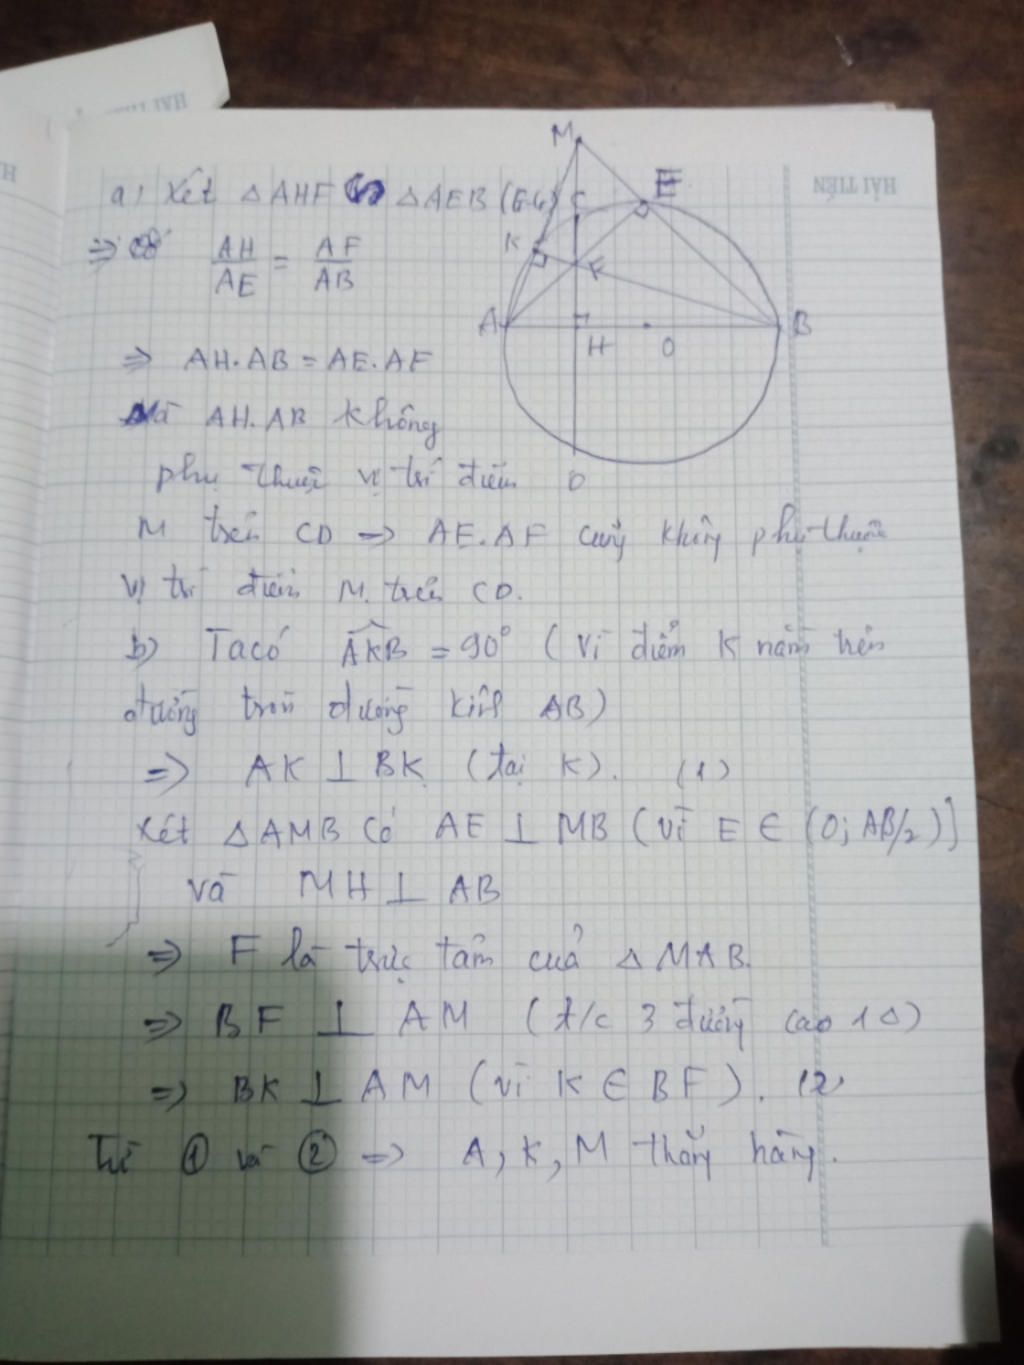 HẢI TIẾN
HẢI TIẾN
M
a) Xét △AHF ∽ △AEB (g.g) C E
⇒ AH/AE = AF/AB K F
A H O B
⇒ AH.AB = AE.AF
Mà AH.AB không
phụ thuộc vị trí điểm D
M trên CD ⇒ AE.AF cũng không phụ thuộc
vị trí điểm M trên CD.
b) Ta có AKB = 90° (vì điểm K nằm trên
đường tròn đường kính AB)
⇒ AK ⊥ BK (tại K). (1)
Xét △AMB có AE ⊥ MB (vì E ∈ (O; AB/2)]
và MH ⊥ AB
⇒ F là trực tâm của △MAB.
⇒ BF ⊥ AM (t/c 3 đường cao 1△)
⇒ BK ⊥ AM (vì K ∈ BF). (2)
Từ ① và ② ⇒ A, K, M thẳng hàng.